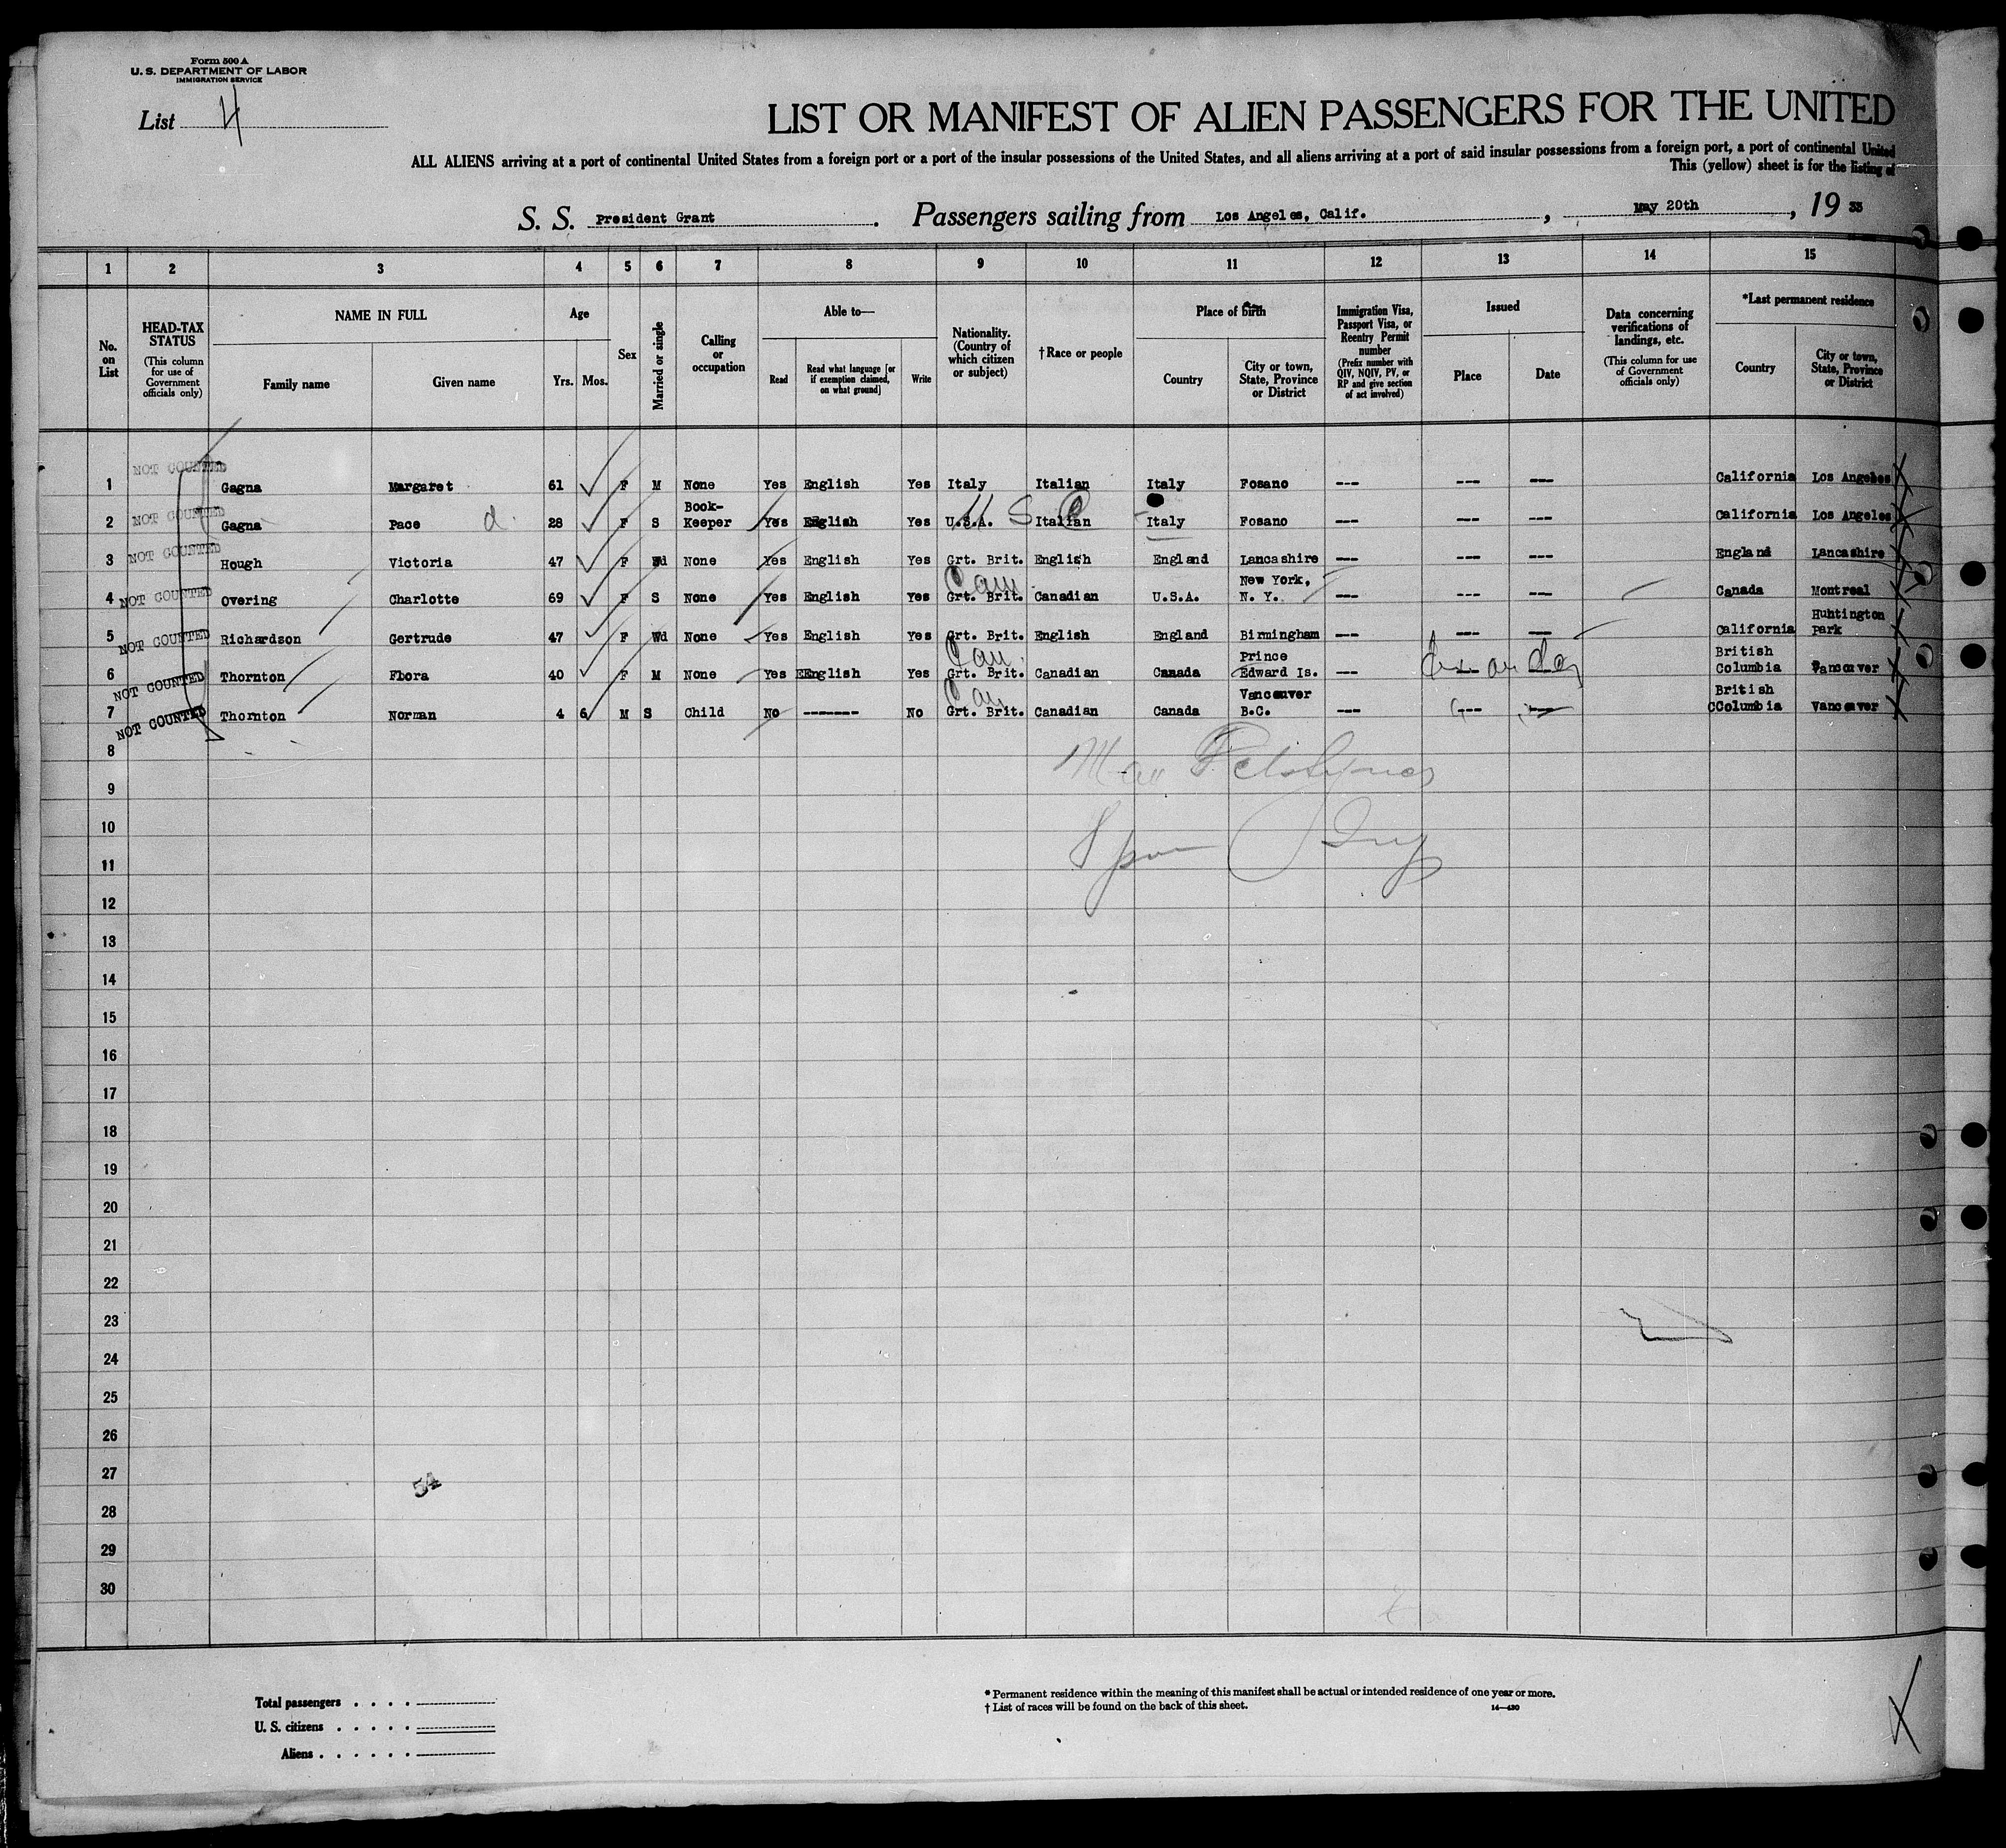 Form 500 A
U. S. DEPARTMENT OF LABOR
IMMIGRATION SERVICE
List 4
LIST OR MANIFEST OF ALIEN PASSENGERS FOR THE UNITED
ALL ALIENS arriving at a port of continental United States from a foreign port or a port of the insular possessions of the United States, and all aliens arriving at a port of said insular possessions from a foreign port, a port of continental United
This (yellow) sheet is for the listing of
S. S. President Grant. Passengers sailing from Los Angeles, Calif., May 20th, 19 33
1 2 3 4 5 6 7 8 9 10 11 12 13 14 15
No. on List
HEAD-TAX STATUS
(This column for use of Government officials only)
NAME IN FULL
Family name
Given name
Age
Yrs. Mos.
Sex
Married or single
Calling or occupation
Able to—
Read
Read what language [or if exemption claimed, on what ground]
Write
Nationality. (Country of which citizen or subject)
† Race or people
Place of birth
Country
City or town, State, Province or District
Immigration Visa, Passport Visa, or Reentry Permit number
(Prefix number with QIV, NQIV, PV, or RP and give section of act involved)
Issued
Place
Date
Data concerning verifications of landings, etc.
(This column for use of Government officials only)
*Last permanent residence
Country
City or town, State, Province or District
1 NOT COUNTED Gagna Margaret 61 F M None Yes English Yes Italy Italian Italy Fosano --- --- --- California Los Angeles
2 NOT COUNTED Gagna Pace d. 28 F S Book-Keeper Yes English Yes U.S.A. U S C Italian Italy Fosano --- --- --- California Los Angeles
3 NOT COUNTED Hough Victoria 47 F Wd None Yes English Yes Grt. Brit. English England Lancashire --- --- --- England Lancashire
4 NOT COUNTED Overing Charlotte 69 F S None Yes English Yes Can Grt. Brit. Canadian U.S.A. New York, N. Y. --- --- --- Canada Montreal
5 NOT COUNTED Richardson Gertrude 47 F Wd None Yes English Yes Grt. Brit. English England Birmingham --- --- --- California Huntington Park
6 NOT COUNTED Thornton Flora 40 F M None Yes EEnglish Yes Can. Grt. Brit. Canadian Canada Prince Edward Is. --- --- --- British Columbia Vancouver
7 NOT COUNTED Thornton Norman 4 6 M S Child No ------- No Can Grt. Brit. Canadian Canada Vancouver B.C. --- --- --- British CColumbia Vancouver
8
9
10
11
12
13
14
15
16
17
18
19
20
21
22
23
24
25
26
27
54
28
29
30
Total passengers . . . .
U. S. citizens . . . . .
Aliens . . . . . .
* Permanent residence within the meaning of this manifest shall be actual or intended residence of one year or more.
† List of races will be found on the back of this sheet.
14—430